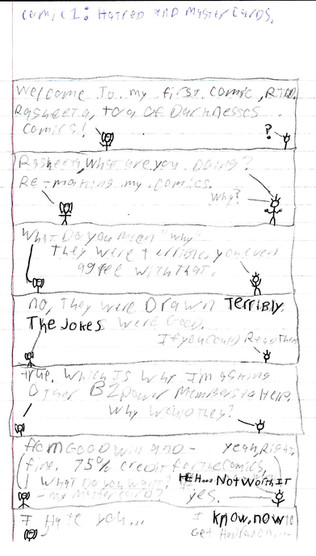 Comic 1: Hatred and Mastercards.
Welcome to my first comic,
Rasheeta, Toa of Darknesses
comics!
?
Rasheeta, what are you doing?
Re-making my comics.
Why?
What do you mean "why"
They were terrible, you even
agree with that.
no, they were Drawn Terribly.
The Jokes were Good.
If you could Read Them
True. Which Is why I'm asking
Other BZPower Members to Help.
Why would they?
yeah Right
fine. 75% credit for the comics,
What Do you want?
HEH... Not worth it
- my Mastercard?
yes.
I Hate you...
I know, now